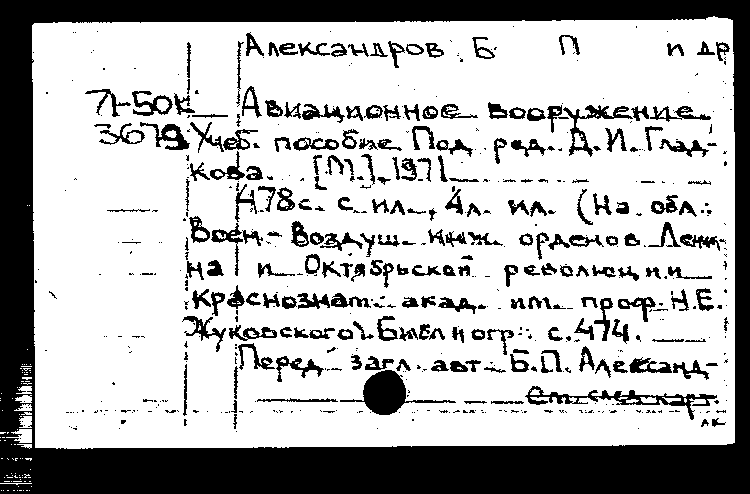 Александров Б П и др
71-50к Авиационное вооружение.
3679 Учеб. пособие Под ред. Д. И. Глад-
кова. [М.], 1971
478 с. с ил., 4 л. ил. (На обл.:
Воен.-Воздуш. инж. орденов Лени-
на и Октябрьской революции
краснознам. акад. им. проф. Н.Е.
Жуковского). Библиогр.: с. 474.
Перед загл. авт. Б.П. Александ-
См. след. карт.
АК